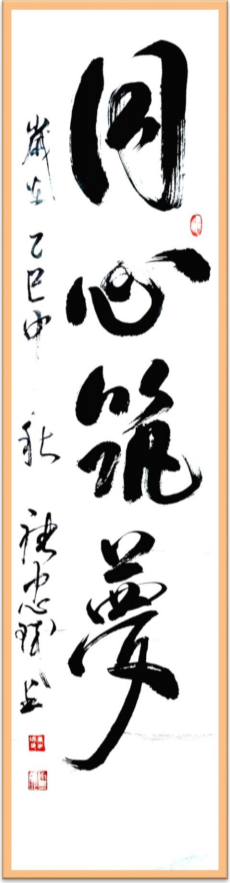 同心筑夢
歲在乙巳中秋